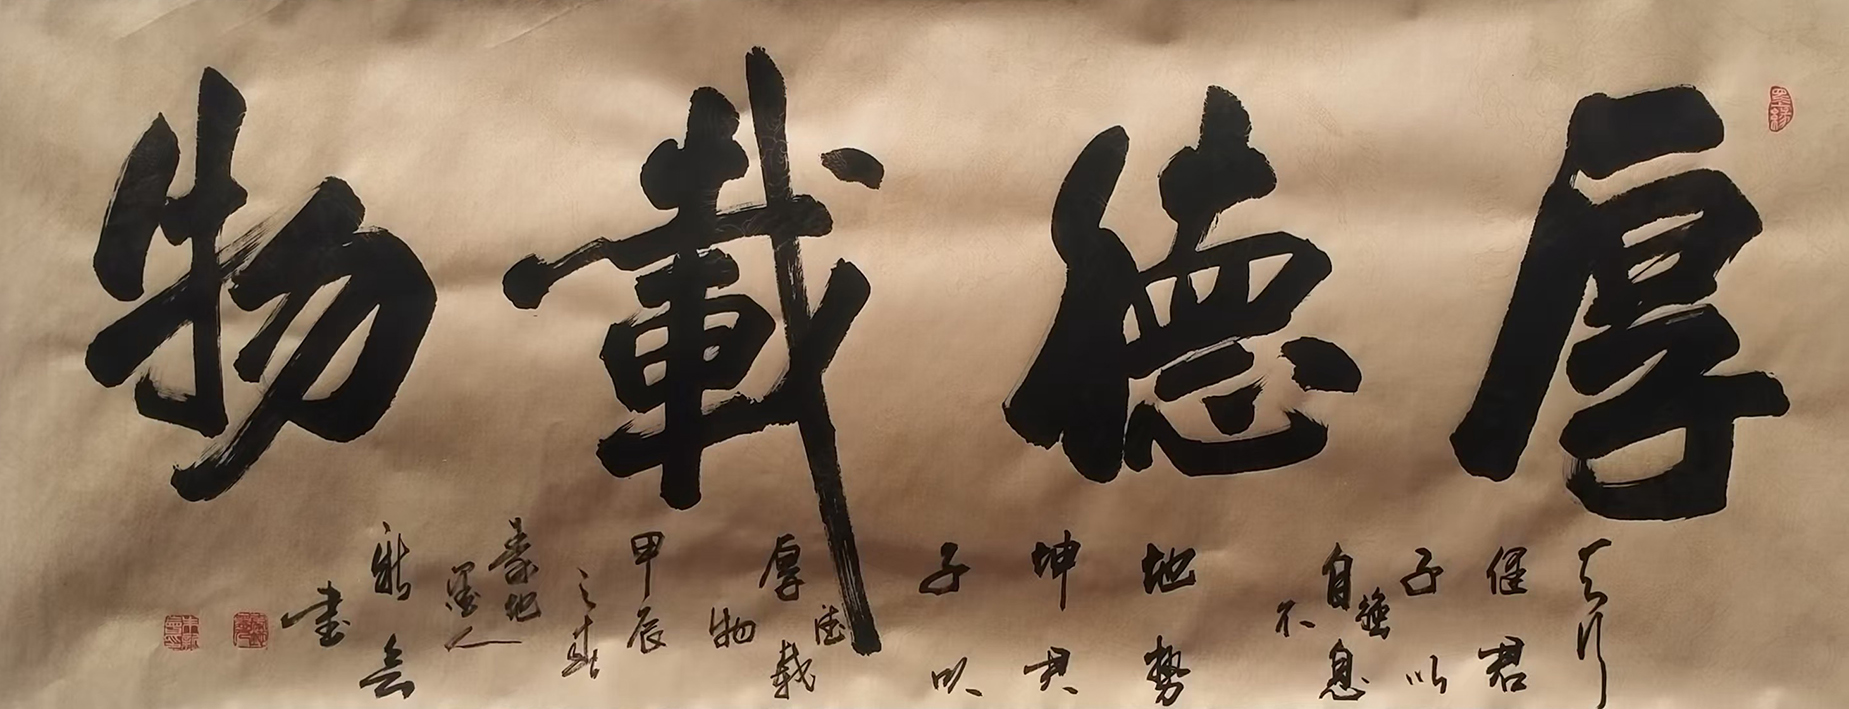 厚德載物
天行
健君
子以
自強
不息
地勢
坤君
子以
厚德
載物
甲辰
之春
墨人
書